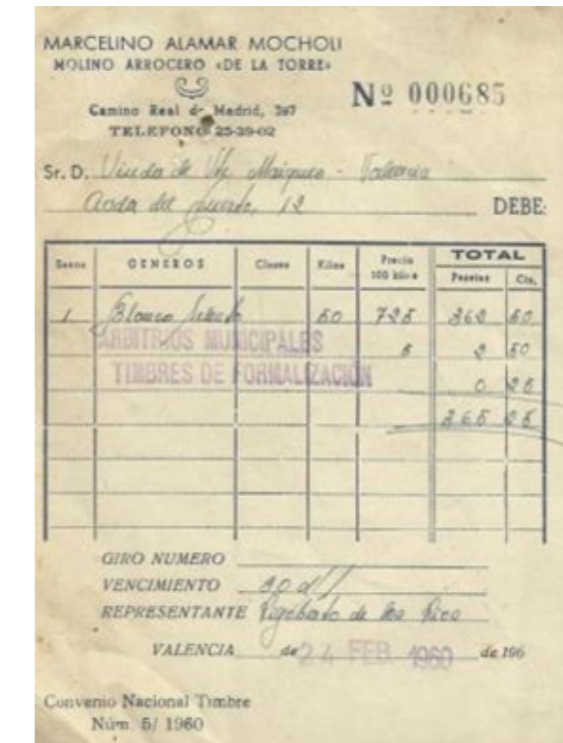 MARCELINO ALAMAR MOCHOLI
MOLINO ARROCERO «DE LA TORRE»
Camino Real de Madrid, 397
TELEFONO 25-39-02
Nº 000685
Sr. D. Viuda de Valencia
del puerto, 12 DEBE:
Sacos GENEROS Clases Kilos Precio 100 kilos TOTAL Pesetas Cts.
1 Blanco 50 725 362 50
ARBITRIOS MUNICIPALES 5 2 50
TIMBRES DE FORMALIZACIÓN 0 25
365 25
GIRO NUMERO
VENCIMIENTO 30 d/
REPRESENTANTE Rigoberto de los
VALENCIA de 24 FEB. 1960 de 196
Convenio Nacional Timbre
Núm. 5/ 1960